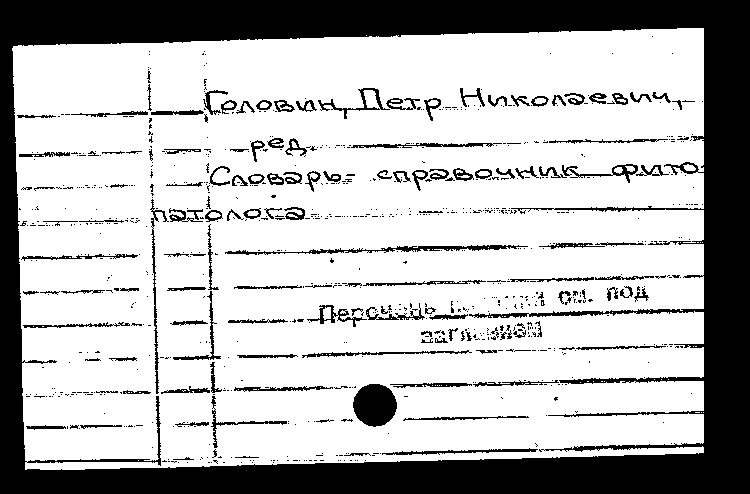 Головин, Петр Николаевич,
ред.
Словарь-справочник фито-
патолога
Перечень см. под
заглавием